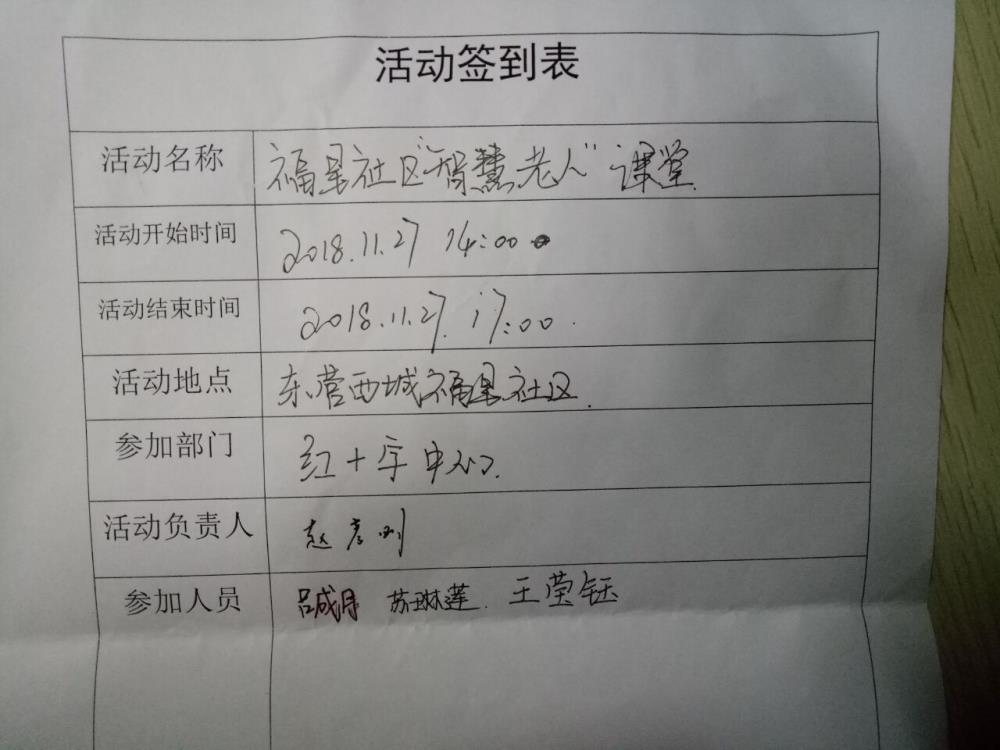 活动签到表
活动名称 福星社区"智慧老人"课堂
活动开始时间 2018.11.27 14:00
活动结束时间 2018.11.27. 17:00.
活动地点 东营西城福星社区.
参加部门 红十字中心.
活动负责人 赵彦刚
参加人员 苏琳莲. 王莹钰